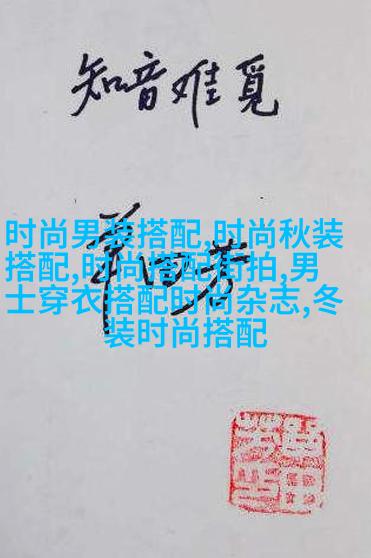 知音难觅
单田芳
时尚男装搭配,时尚秋装
搭配,时尚搭配街拍,男
士穿衣搭配时尚杂志,冬
装时尚搭配